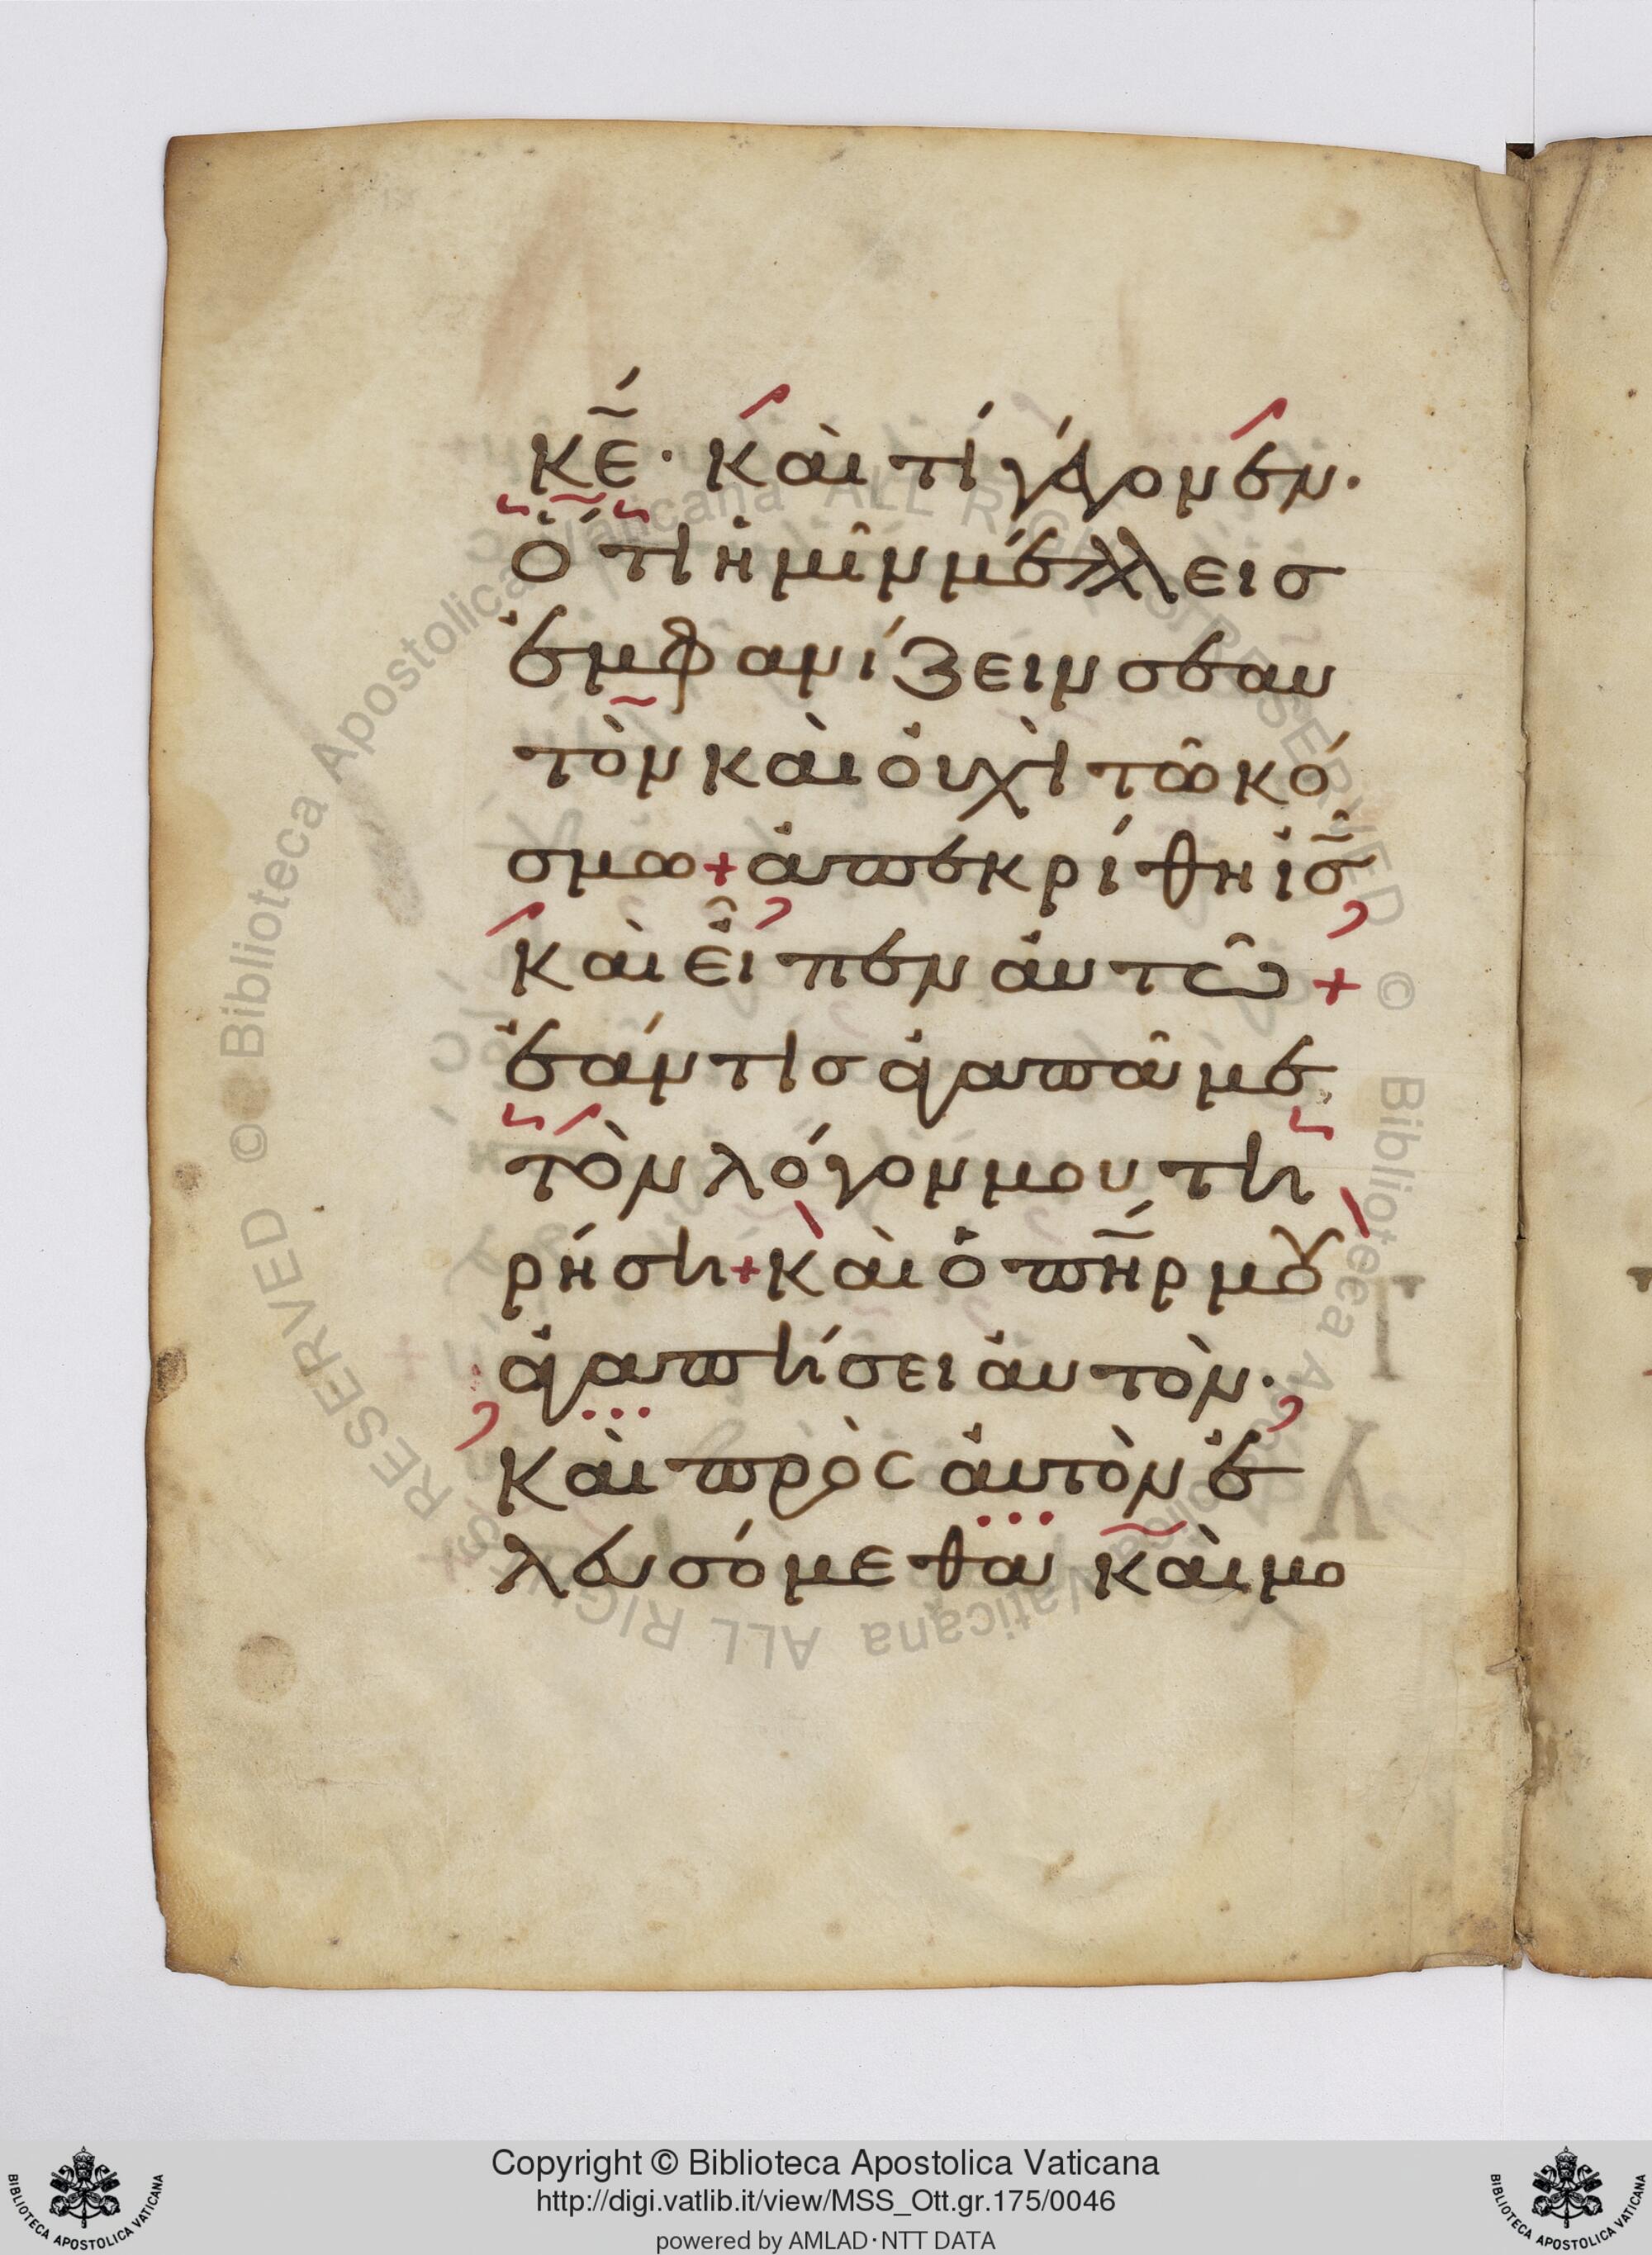 κ̅ε̅· καὶ τί γέγονεν·
ὅτι ἡμῖν μέλλεις
ἐμφανίζειν σεαυ
τὸν καὶ οὐχὶ τῶ κό
σμω + ἀπεκρίθη ἰ̅σ̅
καὶ εἶπεν αὐτῶ +
ἐάν τις ἀγαπᾶ με
τὸν λόγον μου τη
ρήση + καὶ ὁ π̅η̅ρ μου
ἀγαπήσει αὐτὸν·
καὶ πρὸς αὐτὸν ἐ
λευσόμεθα καὶ μο
Copyright © Biblioteca Apostolica Vaticana
http://digi.vatlib.it/view/MSS_Ott.gr.175/0046
powered by AMLAD·NTT DATA
BIBLIOTECA APOSTOLICA VATICANA
BIBLIOTECA APOSTOLICA VATICANA
© Biblioteca Apostolica Vaticana ALL RIGHTS RESERVED © Biblioteca Apostolica Vaticana ALL RIGHTS RESERVED